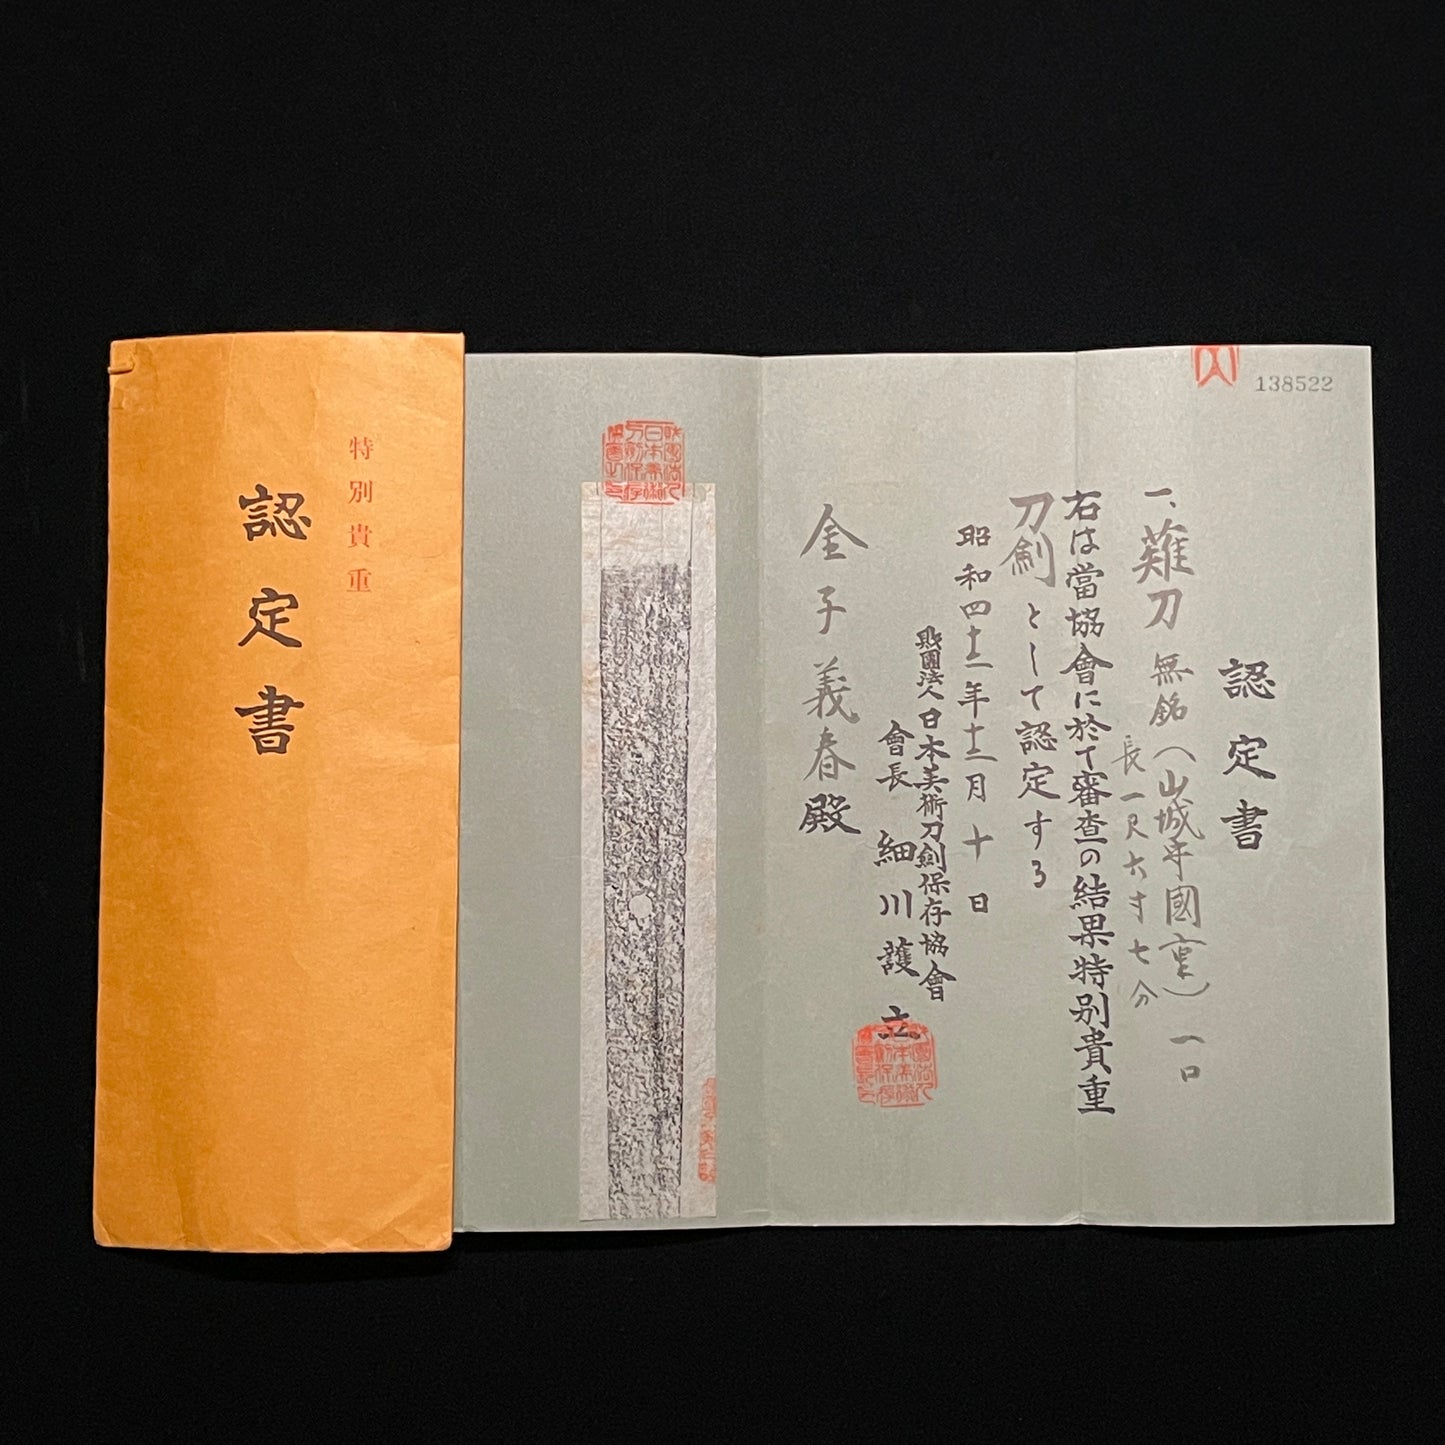 138522
認定書
一、薙刀 無銘(山城守國重) 一口
長一尺六寸七分
右は當協會に於て審査の結果特別貴重
刀劍として認定する
昭和四十二年十二月十日
財團法人日本美術刀劍保存協會
會長 細川護立
金子義春殿
特別貴重
認定書